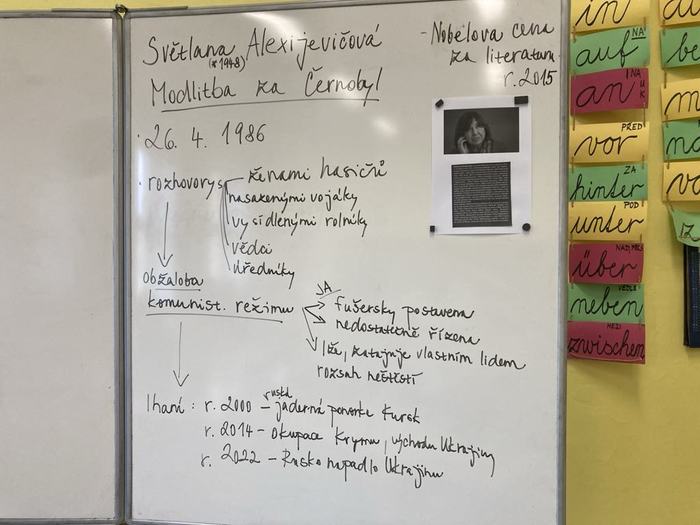 Světlana Alexijevičová
(*1948)
Modlitba za Černobyl
- Nobelova cena
za literaturu
r. 2015
· 26. 4. 1986
· rozhovory s ženami hasičů
nasazenými vojáky
vysídlenými rolníky
vědci
úředníky
Obžaloba
komunist. režimu
JA
fušersky postavena
nedostatečně řízena
lže, zatajuje vlastním lidem
rozsah neštěstí
lhaní : r. 2000 - ruská jaderná ponorka Kursk
r. 2014 - Okupace Krymu, východu Ukrajiny
r. 2022 - Rusko napadlo Ukrajinu
in
auf NA
an NA U K
vor PŘED
hinter ZA
unter POD
über NAD PŘES
neben VEDLE
zwischen MEZI
be